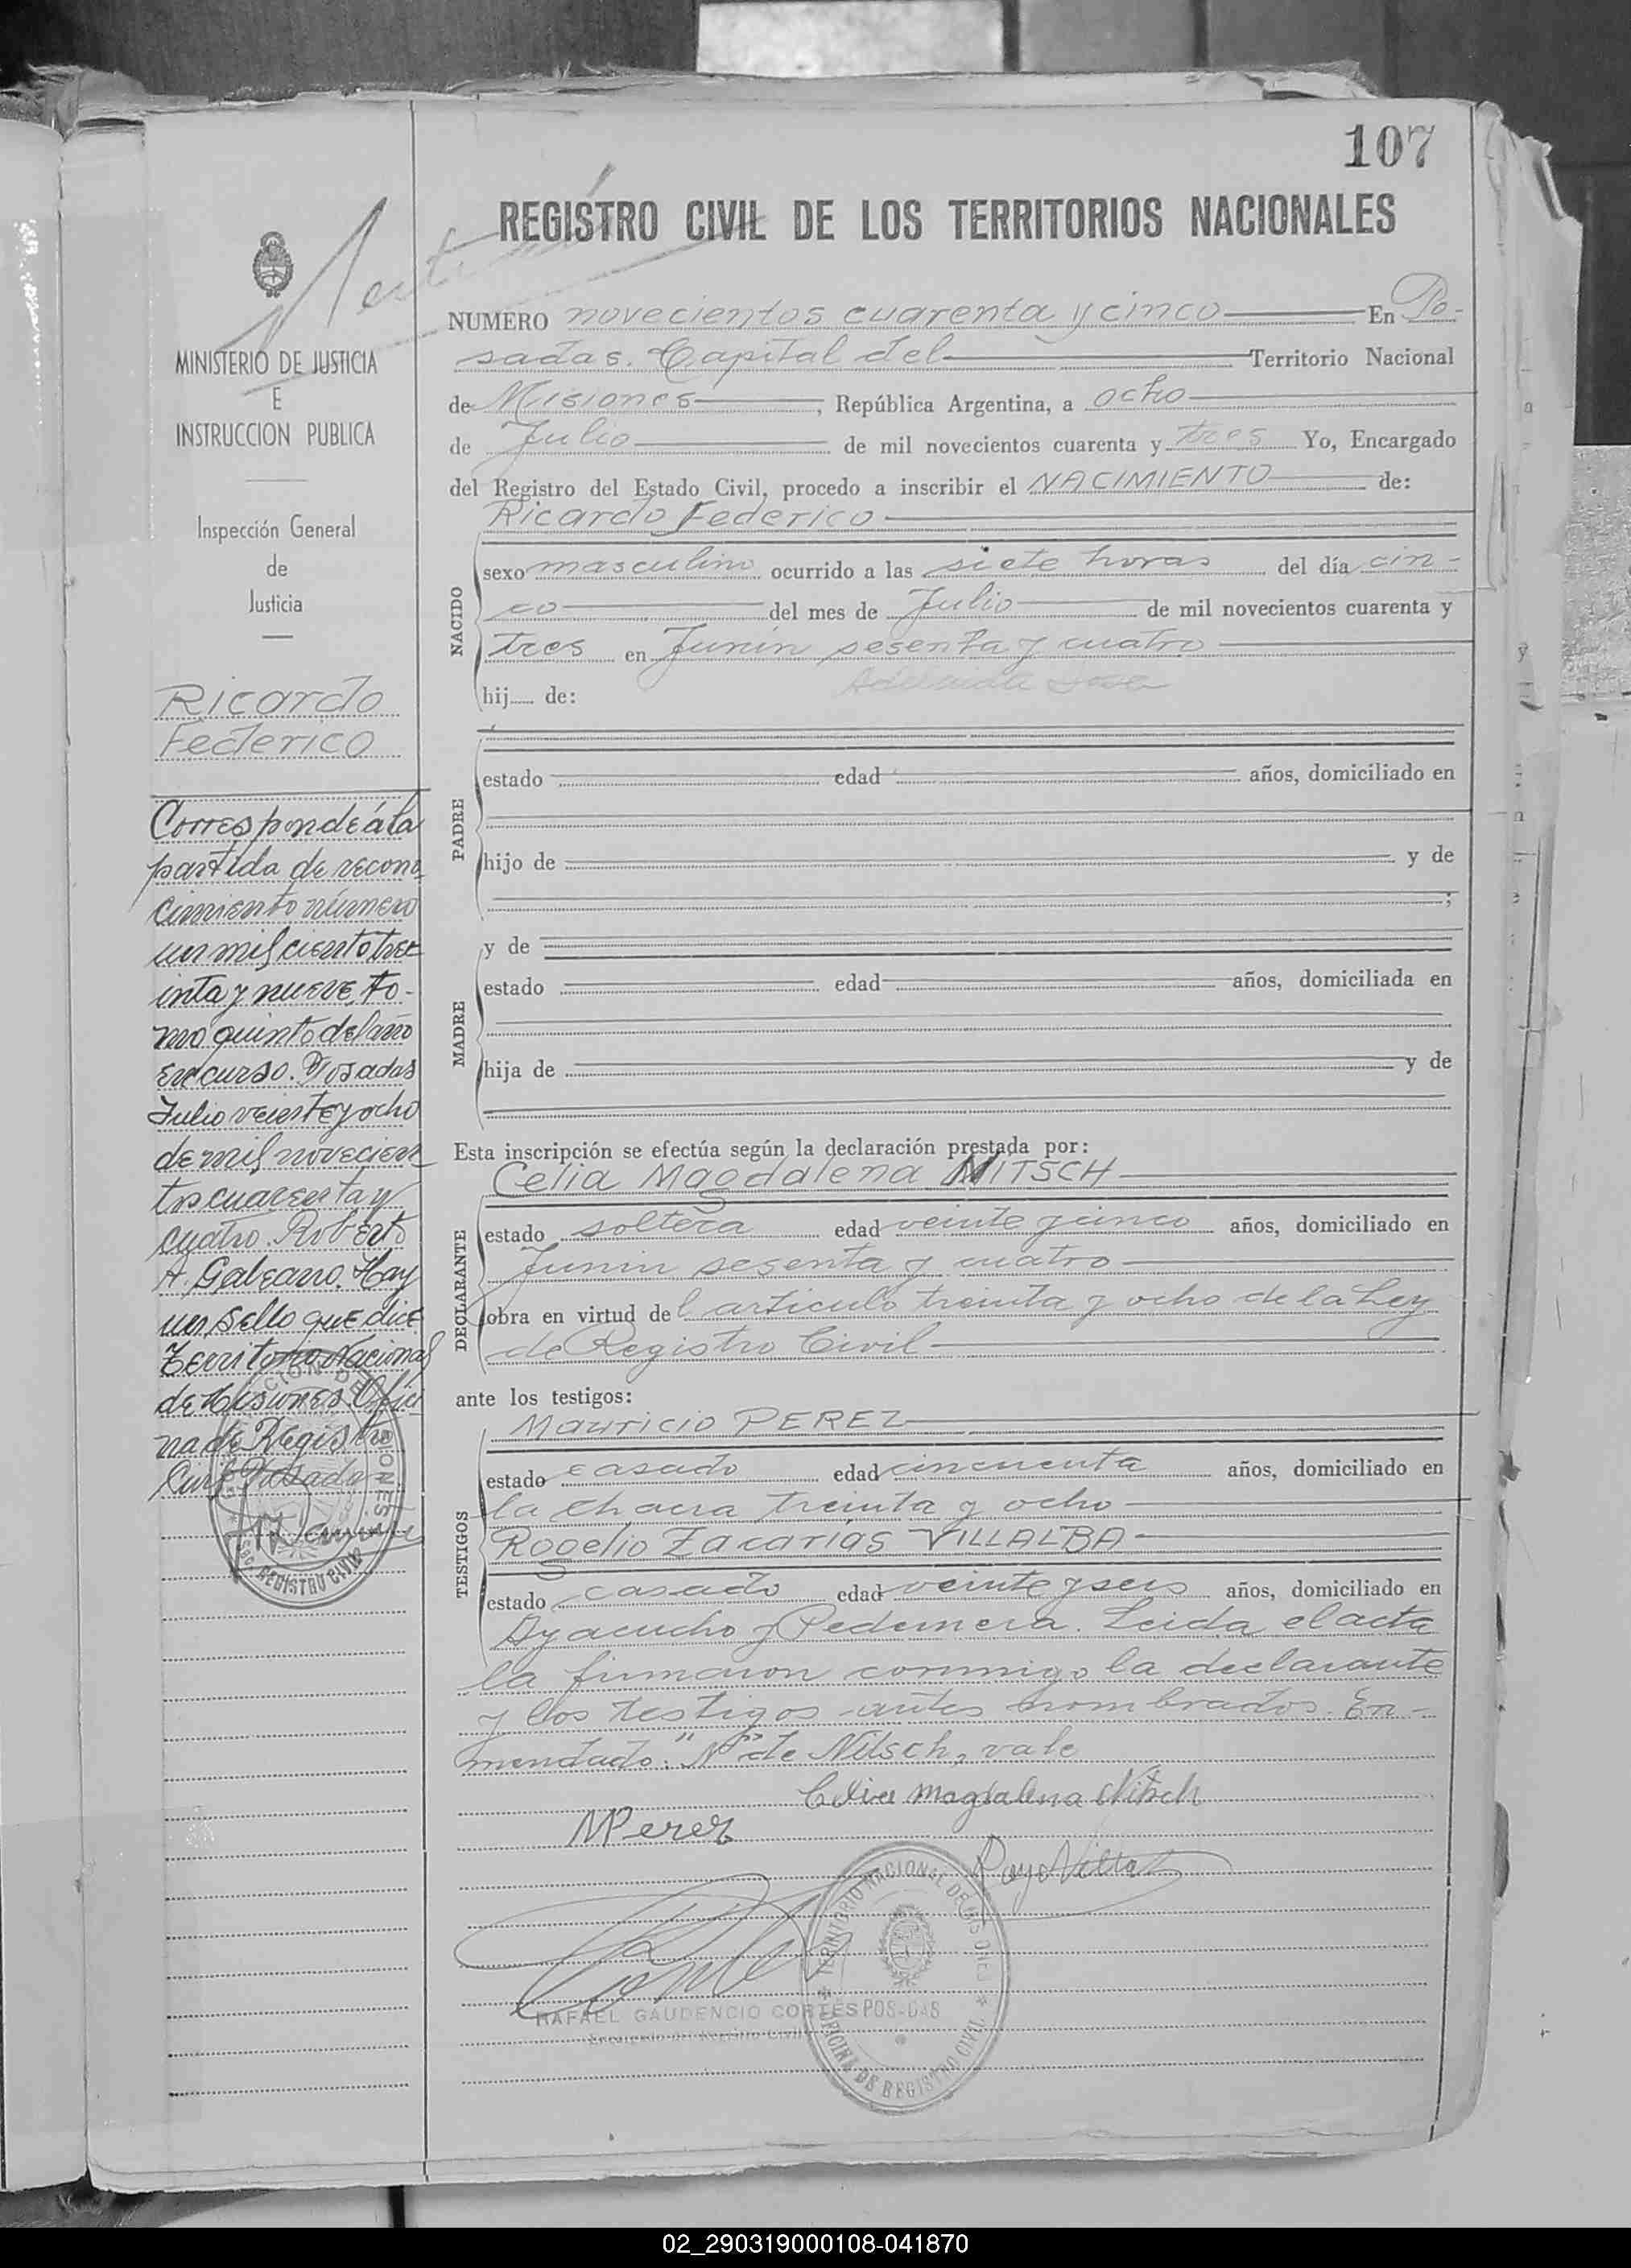 107
REGISTRO CIVIL DE LOS TERRITORIOS NACIONALES
MINISTERIO DE JUSTICIA
E
INSTRUCCION PUBLICA
Inspección General
de
Justicia
Ricardo
Federico
Corresponde á la
partida de recono
cimiento número
un mil ciento tre
inta y nueve, to-
mo quinto del año
en curso. Posadas
Julio veinte y ocho
de mil novecien
tos cuarenta y
cuatro. Roberto
A. Galeano. Hay
un sello que dice
Territorio Nacional
de Misiones Ofici
na de Registro
Civil Posadas
REGISTRO CIVIL
NUMERO novecientos cuarenta y cinco En Po-
sadas. Capital del Territorio Nacional
de Misiones, República Argentina, a ocho
de Julio de mil novecientos cuarenta y tres Yo, Encargado
del Registro del Estado Civil, procedo a inscribir el NACIMIENTO de:
Ricardo Federico
NACIDO
sexo masculino ocurrido a las siete horas del día cin-
co del mes de Julio de mil novecientos cuarenta y
tres en Junin sesenta y cuatro
hij de:
PADRE
estado edad años, domiciliado en
hijo de y de
;
MADRE
y de
estado edad años, domiciliada en
hija de y de
Esta inscripción se efectúa según la declaración prestada por:
Celia Magdalena NITSCH
DECLARANTE
estado soltera edad veinte y cinco años, domiciliado en
Junin sesenta y cuatro
obra en virtud del articulo treinta y ocho de la Ley
de Registro Civil
ante los testigos:
Mauricio PEREZ
TESTIGOS
estado casado edad cincuenta años, domiciliado en
la chacra treinta y ocho
Rogelio Zacarías VILLALBA
estado casado edad veinte y seis años, domiciliado en
Ayacucho y Pedernera. Leida el acta
la firmaron conmigo la declarante
y los testigos antes nombrados. En-
mendado: "N" de Nitsch, vale
Celia Magdalena Nitsch
M Perez
TERRITORIO NACIONAL DE MISIONES
RAFAEL GAUDENCIO CORTES POSADAS
Encargado del Registro Civil
OFICINA DE REGISTRO CIVIL
02_290319000108-041870